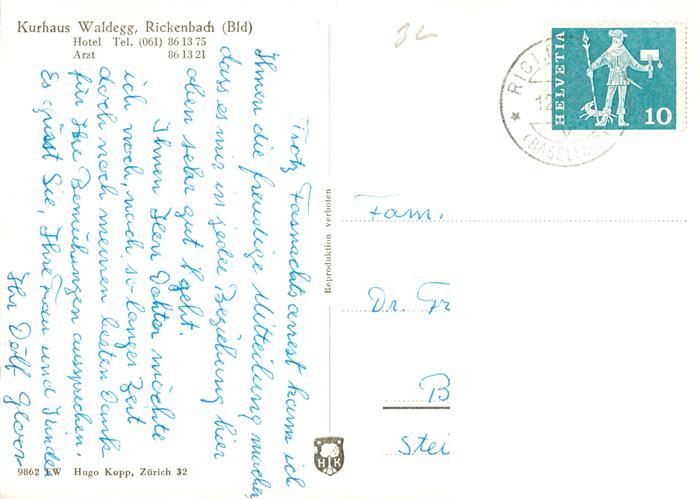 Kurhaus Waldegg, Rickenbach (Bld)
Hotel Tel. (061) 86 13 75
Arzt 86 13 21
Trotz Fasnachtsarrest kann ich
Ihnen die freudige Mitteilung machen,
dass es mir in jeder Beziehung hier
oben sehr gut geht.
Ihnen Herr Doktor möchte
ich noch, nach so langer Zeit
doch noch meinen besten Dank
für Ihre Bemühungen aussprechen.
Es grüsst Sie, Ihre Frau und Kinder
Ihr Dölf
9862 EW Hugo Kopp, Zürich 32
Reproduktion verboten
HK
HELVETIA
10
Fam.
Dr. Gr
B
Stei